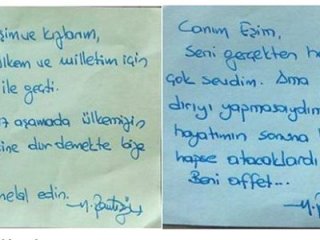 şim ve Kızlarım,
ülkem ve milletim için
ile geçti.
aşamada ülkemizin
ine dur demekte bize
helal edin.
Canım Eşim,
Seni gerçekten
çok sevdim. Ama
diriyi yapmasaydım
hayatımın sonuna
hapse atacaklardı
Beni affet...